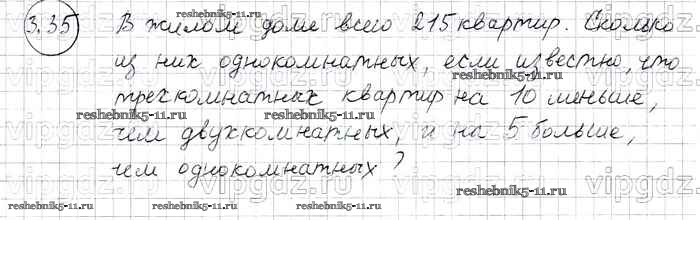 3.35 В жилом доме всего 215 квартир. Сколько
из них однокомнатных, если известно, что
трехкомнатных квартир на 10 меньше,
чем двухкомнатных, и на 5 больше,
чем однокомнатных?
reshebnik5-11.ru
reshebnik5-11.ru
reshebnik5-11.ru
reshebnik5-11.ru
reshebnik5-11.ru
reshebnik5-11.ru
vipgdz.ru
vipgdz.ru
vipgdz.ru